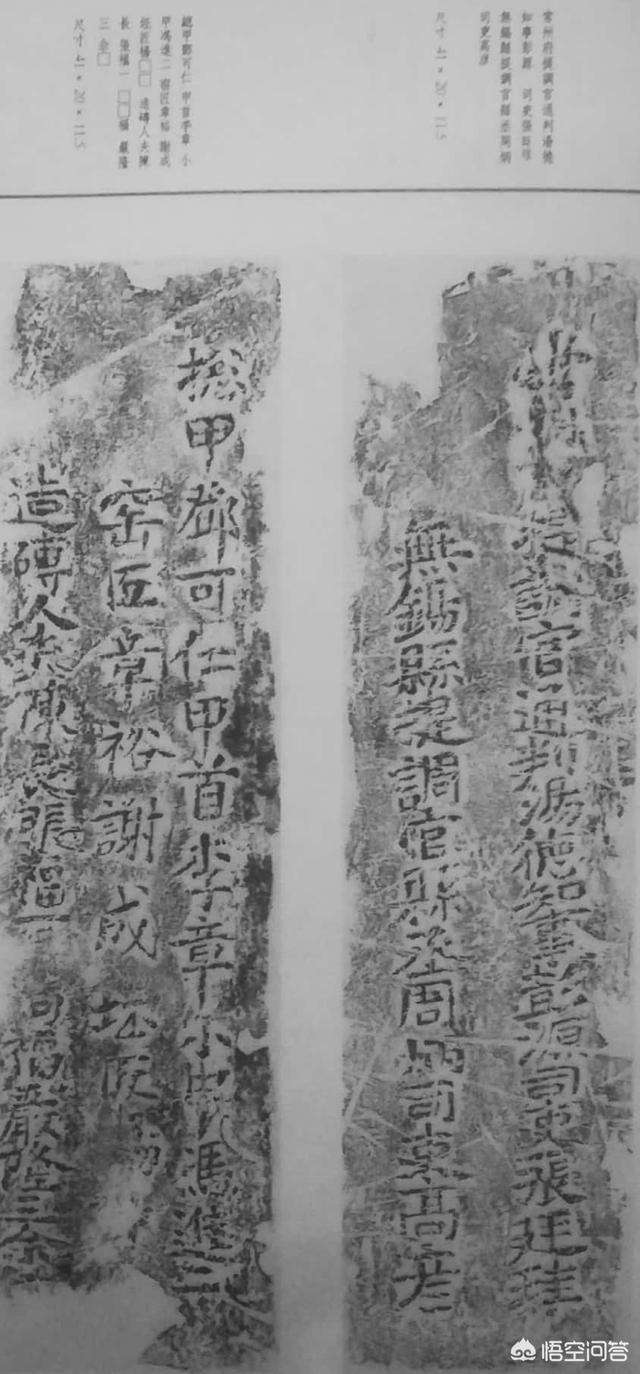 常州府提調官通判湯德
知事彭源 司吏張廷珪
無錫縣提調官縣丞周炳
司吏高彦
尺寸 41×20×11.5
總甲鄧可仁 甲首李章 小
甲馮進二 窑匠章裕 謝成
坯匠楊□□ 造磚人夫陳
長 張福一 □□福 嚴隆
三 金□
尺寸 41×20×11.5
提調官通判湯德知事彭源司吏張廷珪
無錫縣提調官縣丞周炳司吏高彦
総甲鄧可仁甲首李章小甲馮進二
窑匠章裕謝成坯匠
造磚人夫陳長張福一 福嚴隆三
悟空问答